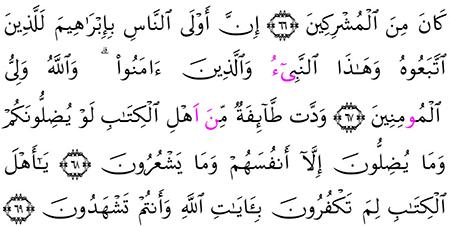 كَانَ مِنَ ٱلْمُشْرِكِينَ ﴿٦٦﴾ إِنَّ أَوْلَى ٱلنَّاسِ بِإِبْرَٰهِيمَ لَلَّذِينَ
ٱتَّبَعُوهُ وَهَـٰذَا ٱلنَّبِىٓءُ وَٱلَّذِينَ ءَامَنُوا۟ ۗ وَٱللَّهُ وَلِىُّ
ٱلْمُومِنِينَ ﴿٦٧﴾ وَدَّت طَّآئِفَةٌ مِّنَ اَهْلِ ٱلْكِتَـٰبِ لَوْ يُضِلُّونَكُمْ
وَمَا يُضِلُّونَ إِلَّآ أَنفُسَهُمْ وَمَا يَشْعُرُونَ ﴿٦٨﴾ يَـٰٓأَهْلَ
ٱلْكِتَـٰبِ لِمَ تَكْفُرُونَ بِـَٔايَـٰتِ ٱللَّهِ وَأَنتُمْ تَشْهَدُونَ ﴿٦٩﴾